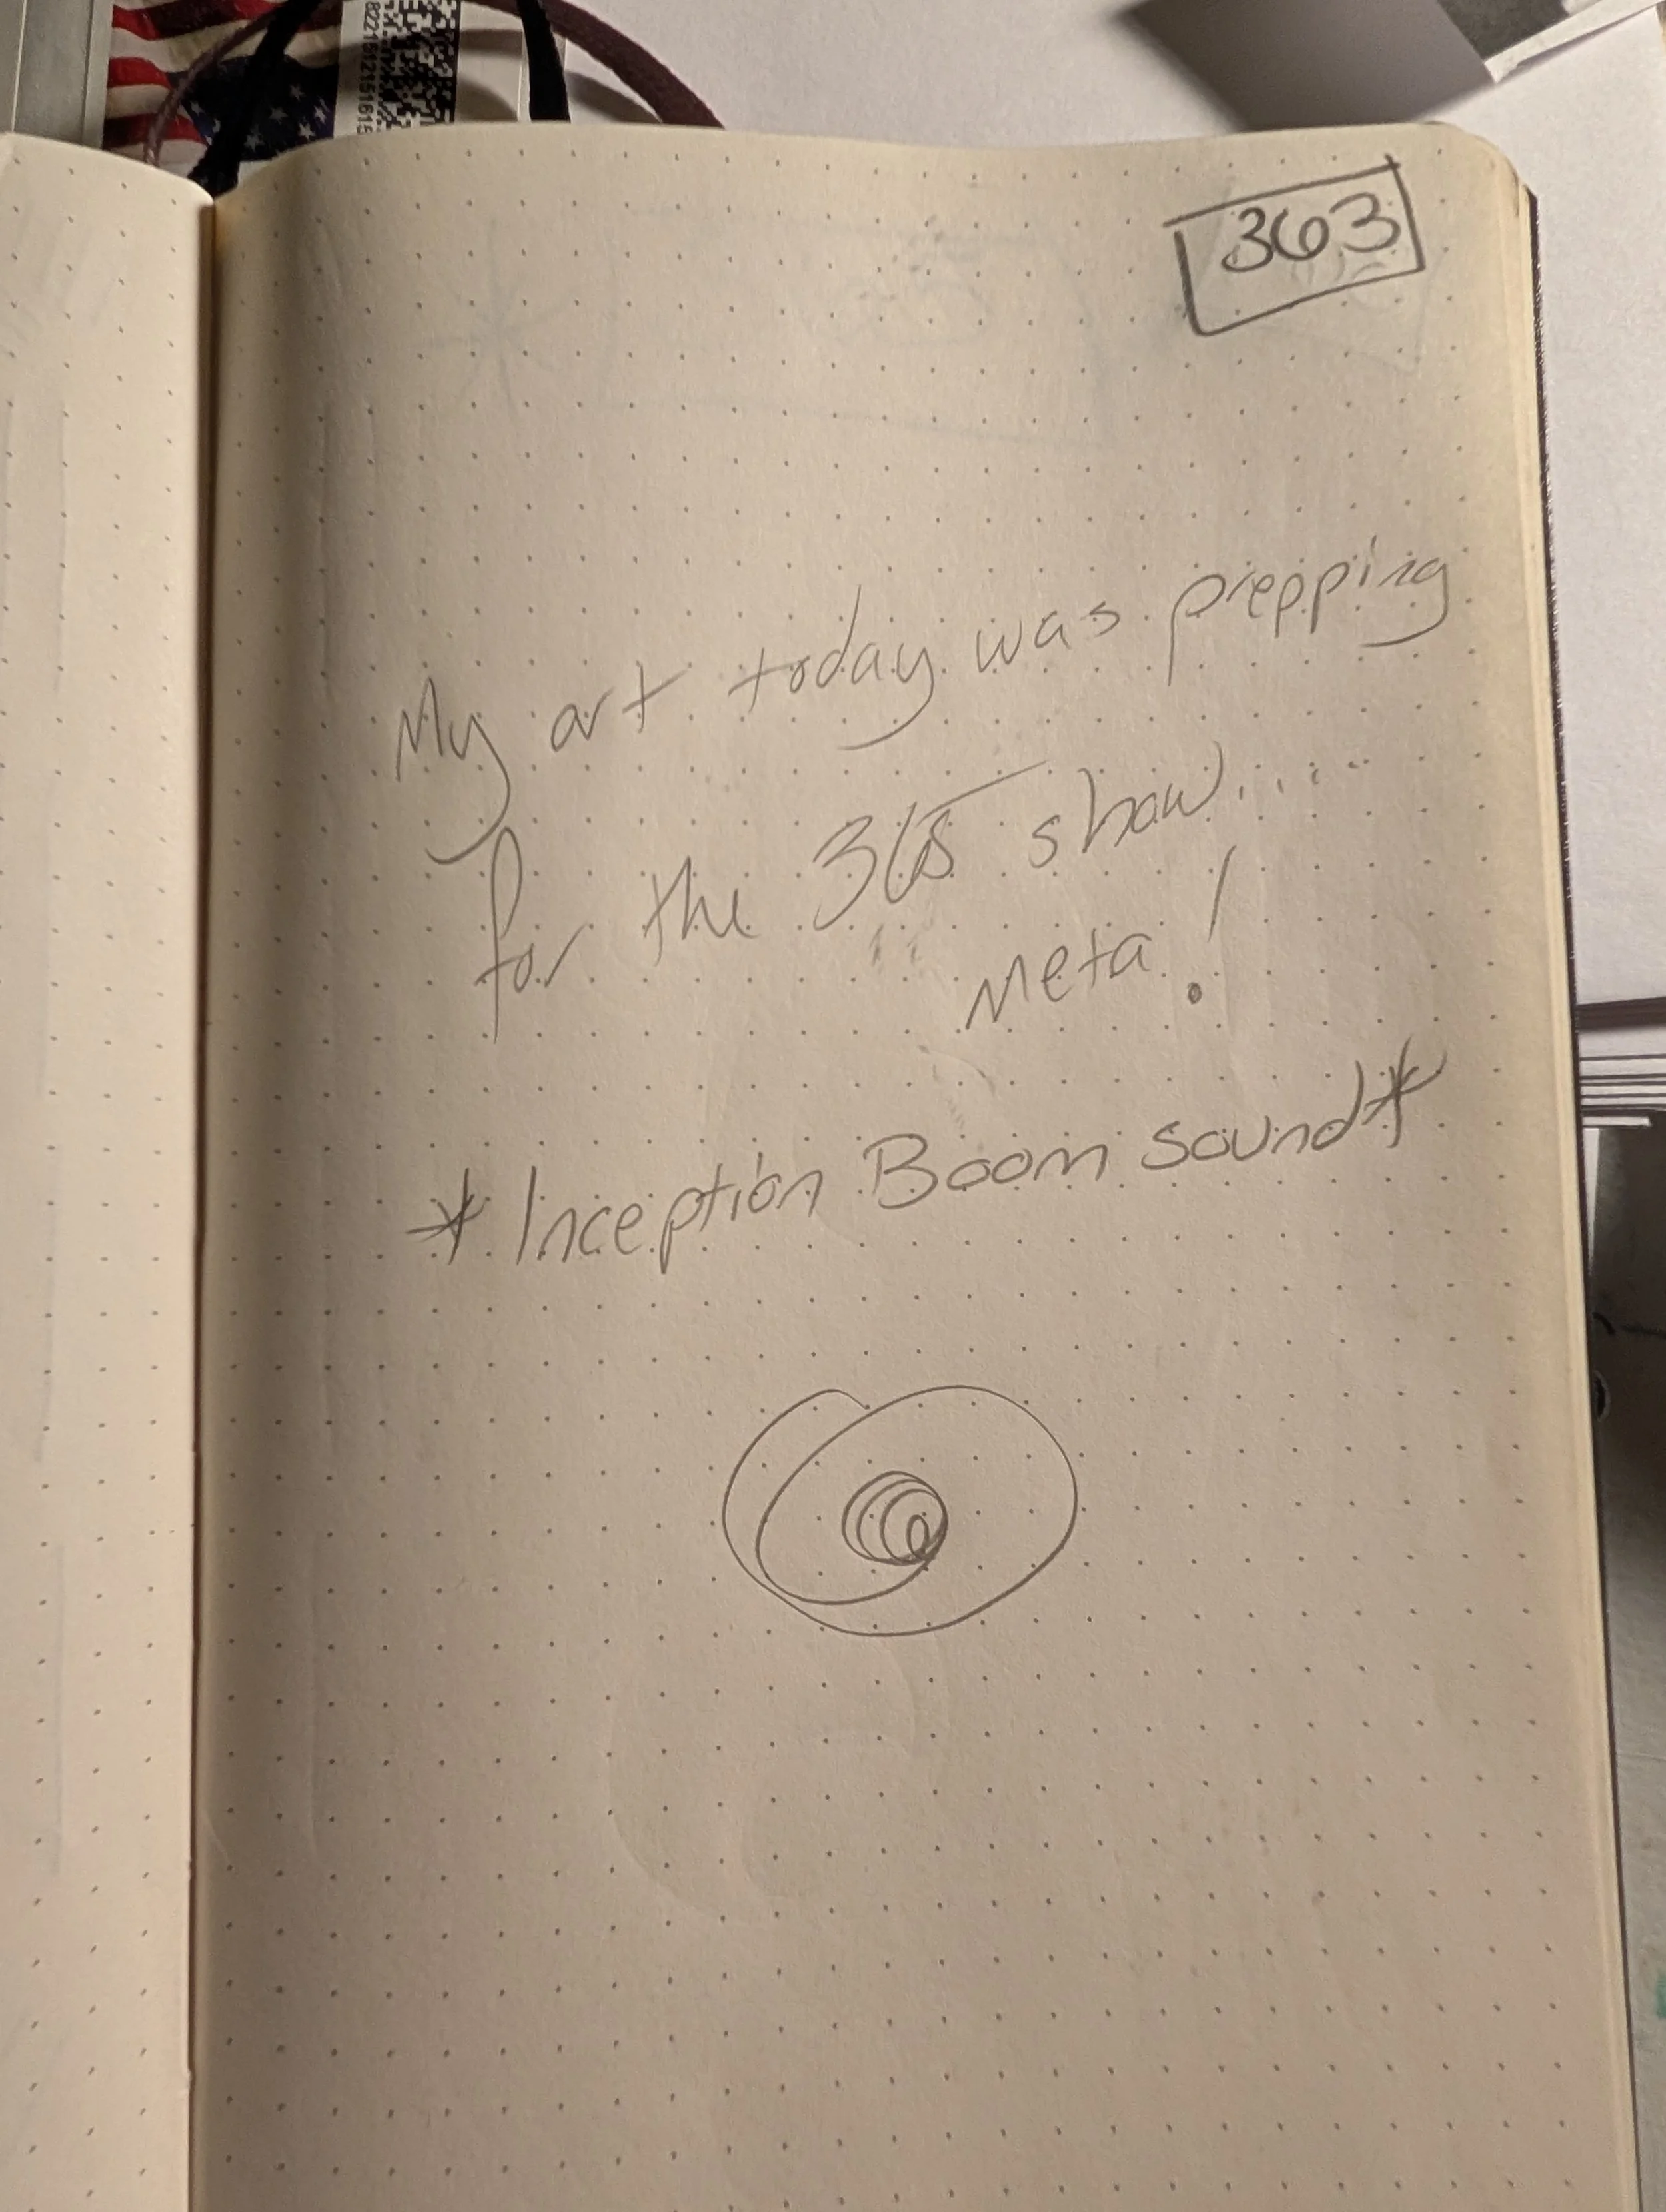 8221512151615
363
My art today was prepping
for the 365 show....
Meta!
*Inception Boom sound*